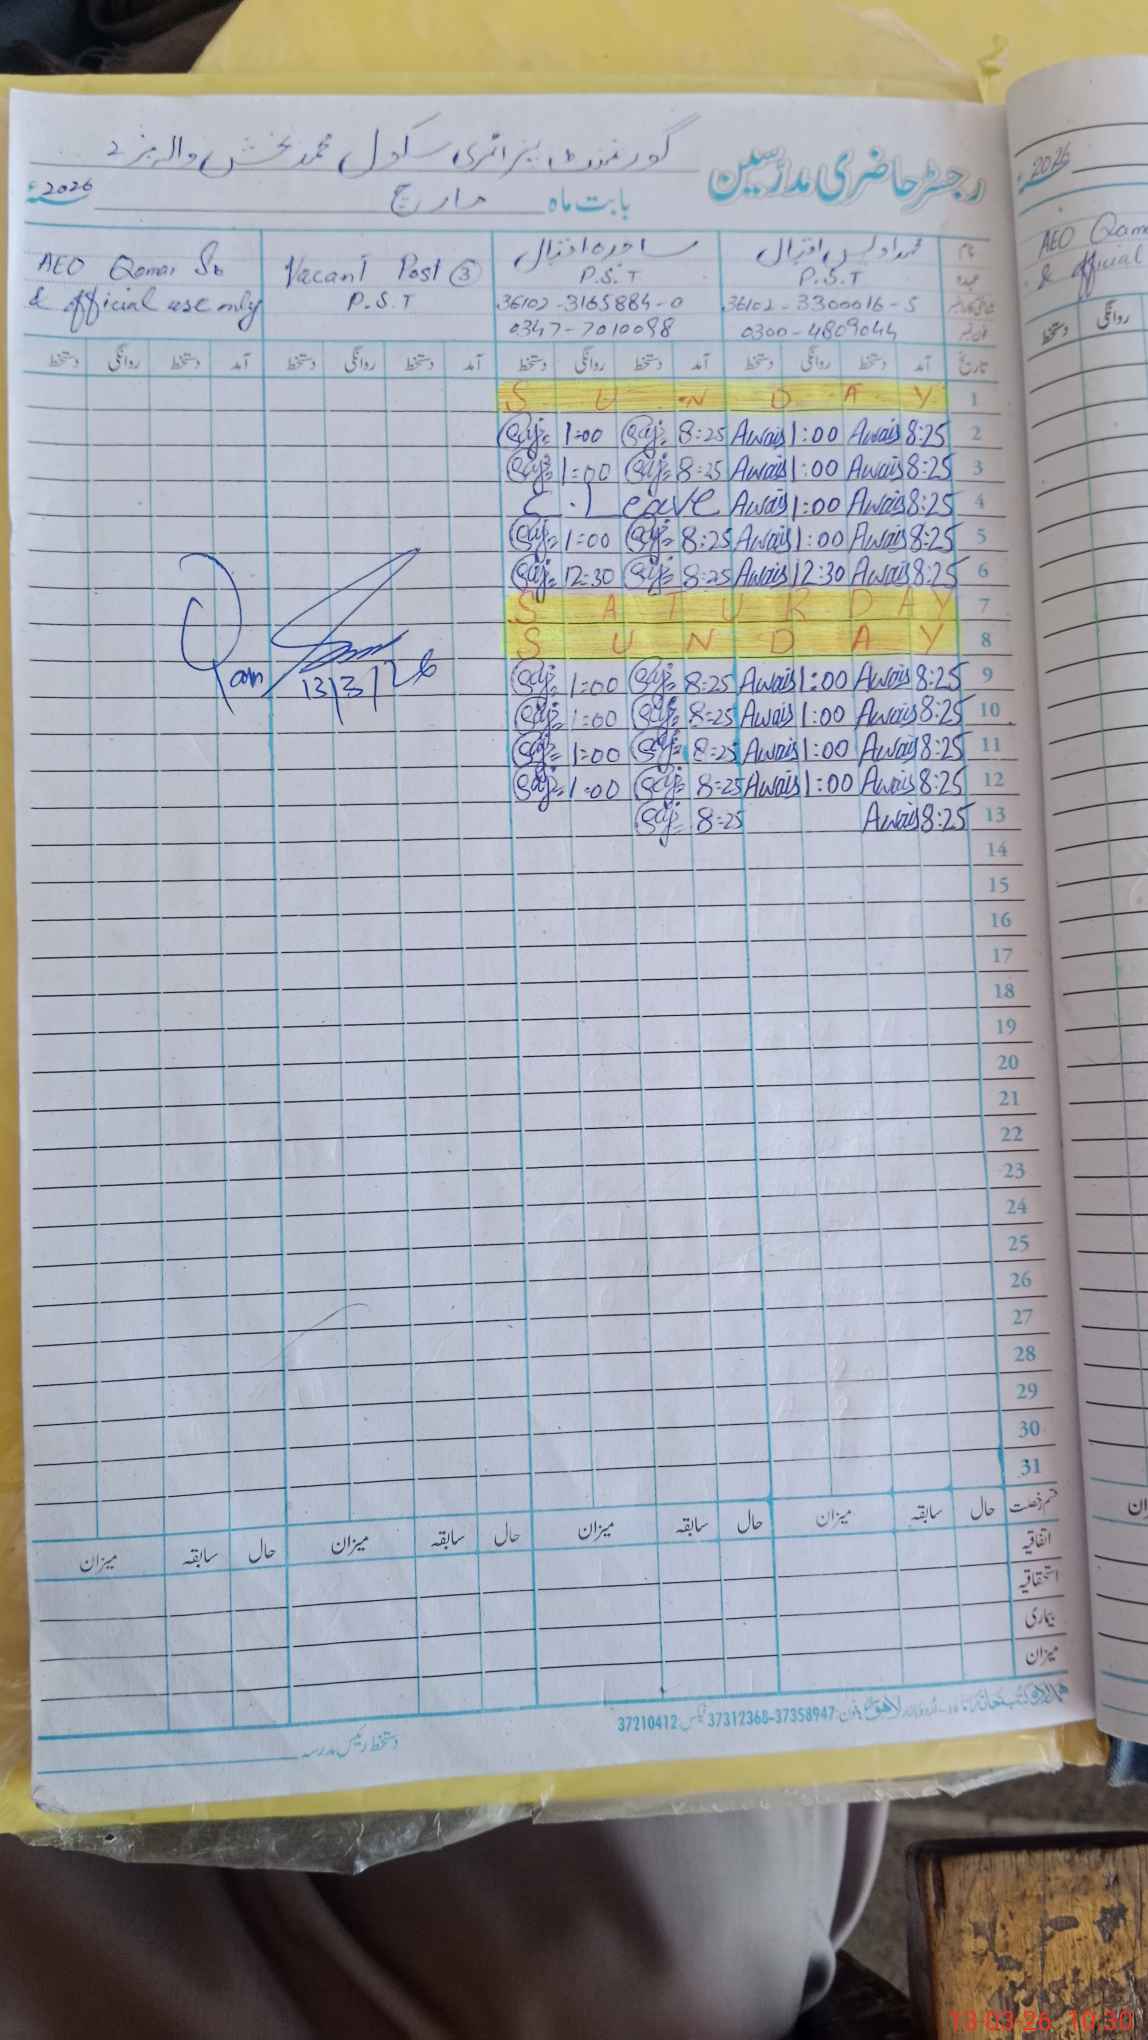 رجسٹر حاضری مدرسین
گورنمنٹ پرائمری سکول محمد بخش والہ نمبر 2
بابت ماہ مارچ 2026ء
نام محمد اویس اقبال ساجدہ اقبال Vacant Post ③ AEO Qamar Sb
عہدہ P.S.T P.S.T P.S.T & official use only
36102-3300016-5 36102-3165884-0
فون نمبر 0300-4809044 0347-7010098
تاریخ آمد دستخط روانگی دستخط آمد دستخط روانگی دستخط آمد دستخط روانگی دستخط آمد دستخط روانگی دستخط
1 S U N D A Y
2 8:25 Awais 1:00 Awais 8:25 Saj 1:00 Saj
3 8:25 Awais 1:00 Awais 8:25 Saj 1:00 Saj
4 8:25 Awais 1:00 Awais C.Leave
5 8:25 Awais 1:00 Awais 8:25 Saj 1:00 Saj
6 8:25 Awais 12:30 Awais 8:25 Saj 12:30 Saj
7 S A T U R D A Y
8 S U N D A Y
9 8:25 Awais 1:00 Awais 8:25 Saj 1:00 Saj
10 8:25 Awais 1:00 Awais 8:25 Saj 1:00 Saj
11 8:25 Awais 1:00 Awais 8:25 Saj 1:00 Saj
12 8:25 Awais 1:00 Awais 8:25 Saj 1:00 Saj
13 8:25 Awais 8:25 Saj
13/3/26
14
15
16
17
18
19
20
21
22
23
24
25
26
27
28
29
30
31
قسم رخصت حال سابقہ میزان حال سابقہ میزان حال سابقہ میزان حال سابقہ میزان
اتفاقیہ
استحقاقیہ
بیماری
میزان
اردو بازار لاہور فون: 37358947-37312368 فیکس: 37210412
دستخط رئیس مدرسہ
2026ء
AEO Qama
& official
روانگی دستخط
13-03-26 10:30